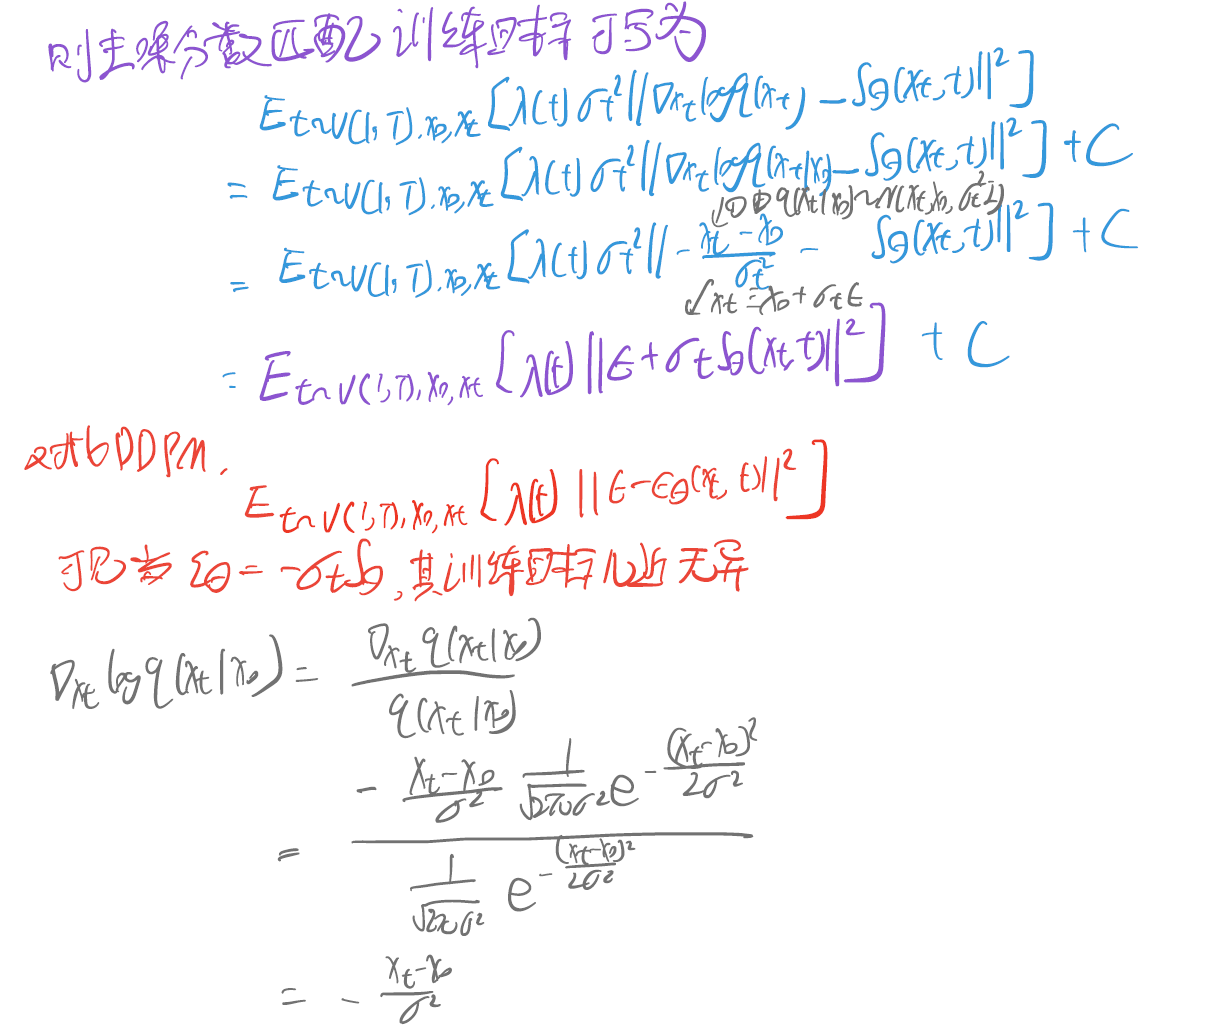 则去噪分数匹配训练目标可写为
E_{t~U(1,T),x₀,x_t}[λ(t)σ_t²||∇_{x_t}log q(x_t) - S_θ(x_t,t)||²]
= E_{t~U(1,T),x₀,x_t}[λ(t)σ_t²||∇_{x_t}log q(x_t|x₀) - S_θ(x_t,t)||²] + C
↙ q(x_t|x₀)~N(x_t;x₀,σ_t²I)
= E_{t~U(1,T),x₀,x_t}[λ(t)σ_t²||-\frac{x_t-x₀}{σ_t²} - S_θ(x_t,t)||²] + C
↙ x_t = x₀+σ_tϵ
= E_{t~U(1,T),x₀,x_t}[λ(t)||ϵ+σ_tS_θ(x_t,t)||²] + C
对比DDPM,
E_{t~U(1,T),x₀,x_t}[λ(t)||ϵ-ϵ_θ(x_t,t)||²]
可见当ε_θ = -σ_tS_θ,其训练目标几近无异
∇_{x_t}log q(x_t|x₀) = \frac{∇_{x_t}q(x_t|x₀)}{q(x_t|x₀)}
= \frac{-\frac{x_t-x₀}{σ²}\frac{1}{\sqrt{2πσ²}}e^{-\frac{(x_t-x₀)²}{2σ²}}}{\frac{1}{\sqrt{2πσ²}}e^{-\frac{(x_t-x₀)²}{2σ²}}}
= -\frac{x_t-x₀}{σ²}